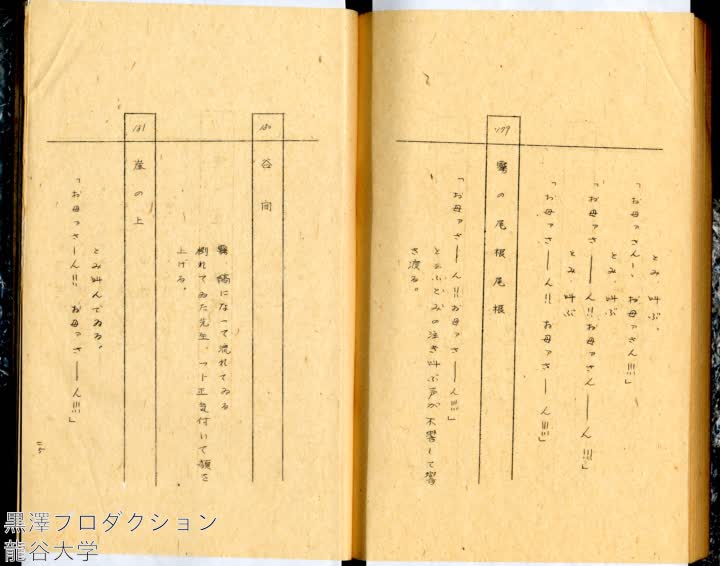 とみ叫ぶ、
「お母ァさん!、お母ァさん!!!」
とみ、叫ぶ
「お母ァさ——ん!!お母ァさん——ん!!!」
とみ、叫ぶ
「お母ァさ——ん!! お母ァさ——ん!!!」
179 霧の尾根尾根
「お母ァさ——ん!!お母ァさ——ん!!!」
とみの泣き叫ぶ声が木響して響
き渡る。
180 谷間
霧、縞になって流れてゐる
倒れてゐた先生、フト正気付いて顔を
上げる。
181 崖の上
とみ叫んでゐる。
「お母ァさーん!! お母ァさ——ん!!!」
黒澤プロダクション
龍谷大学